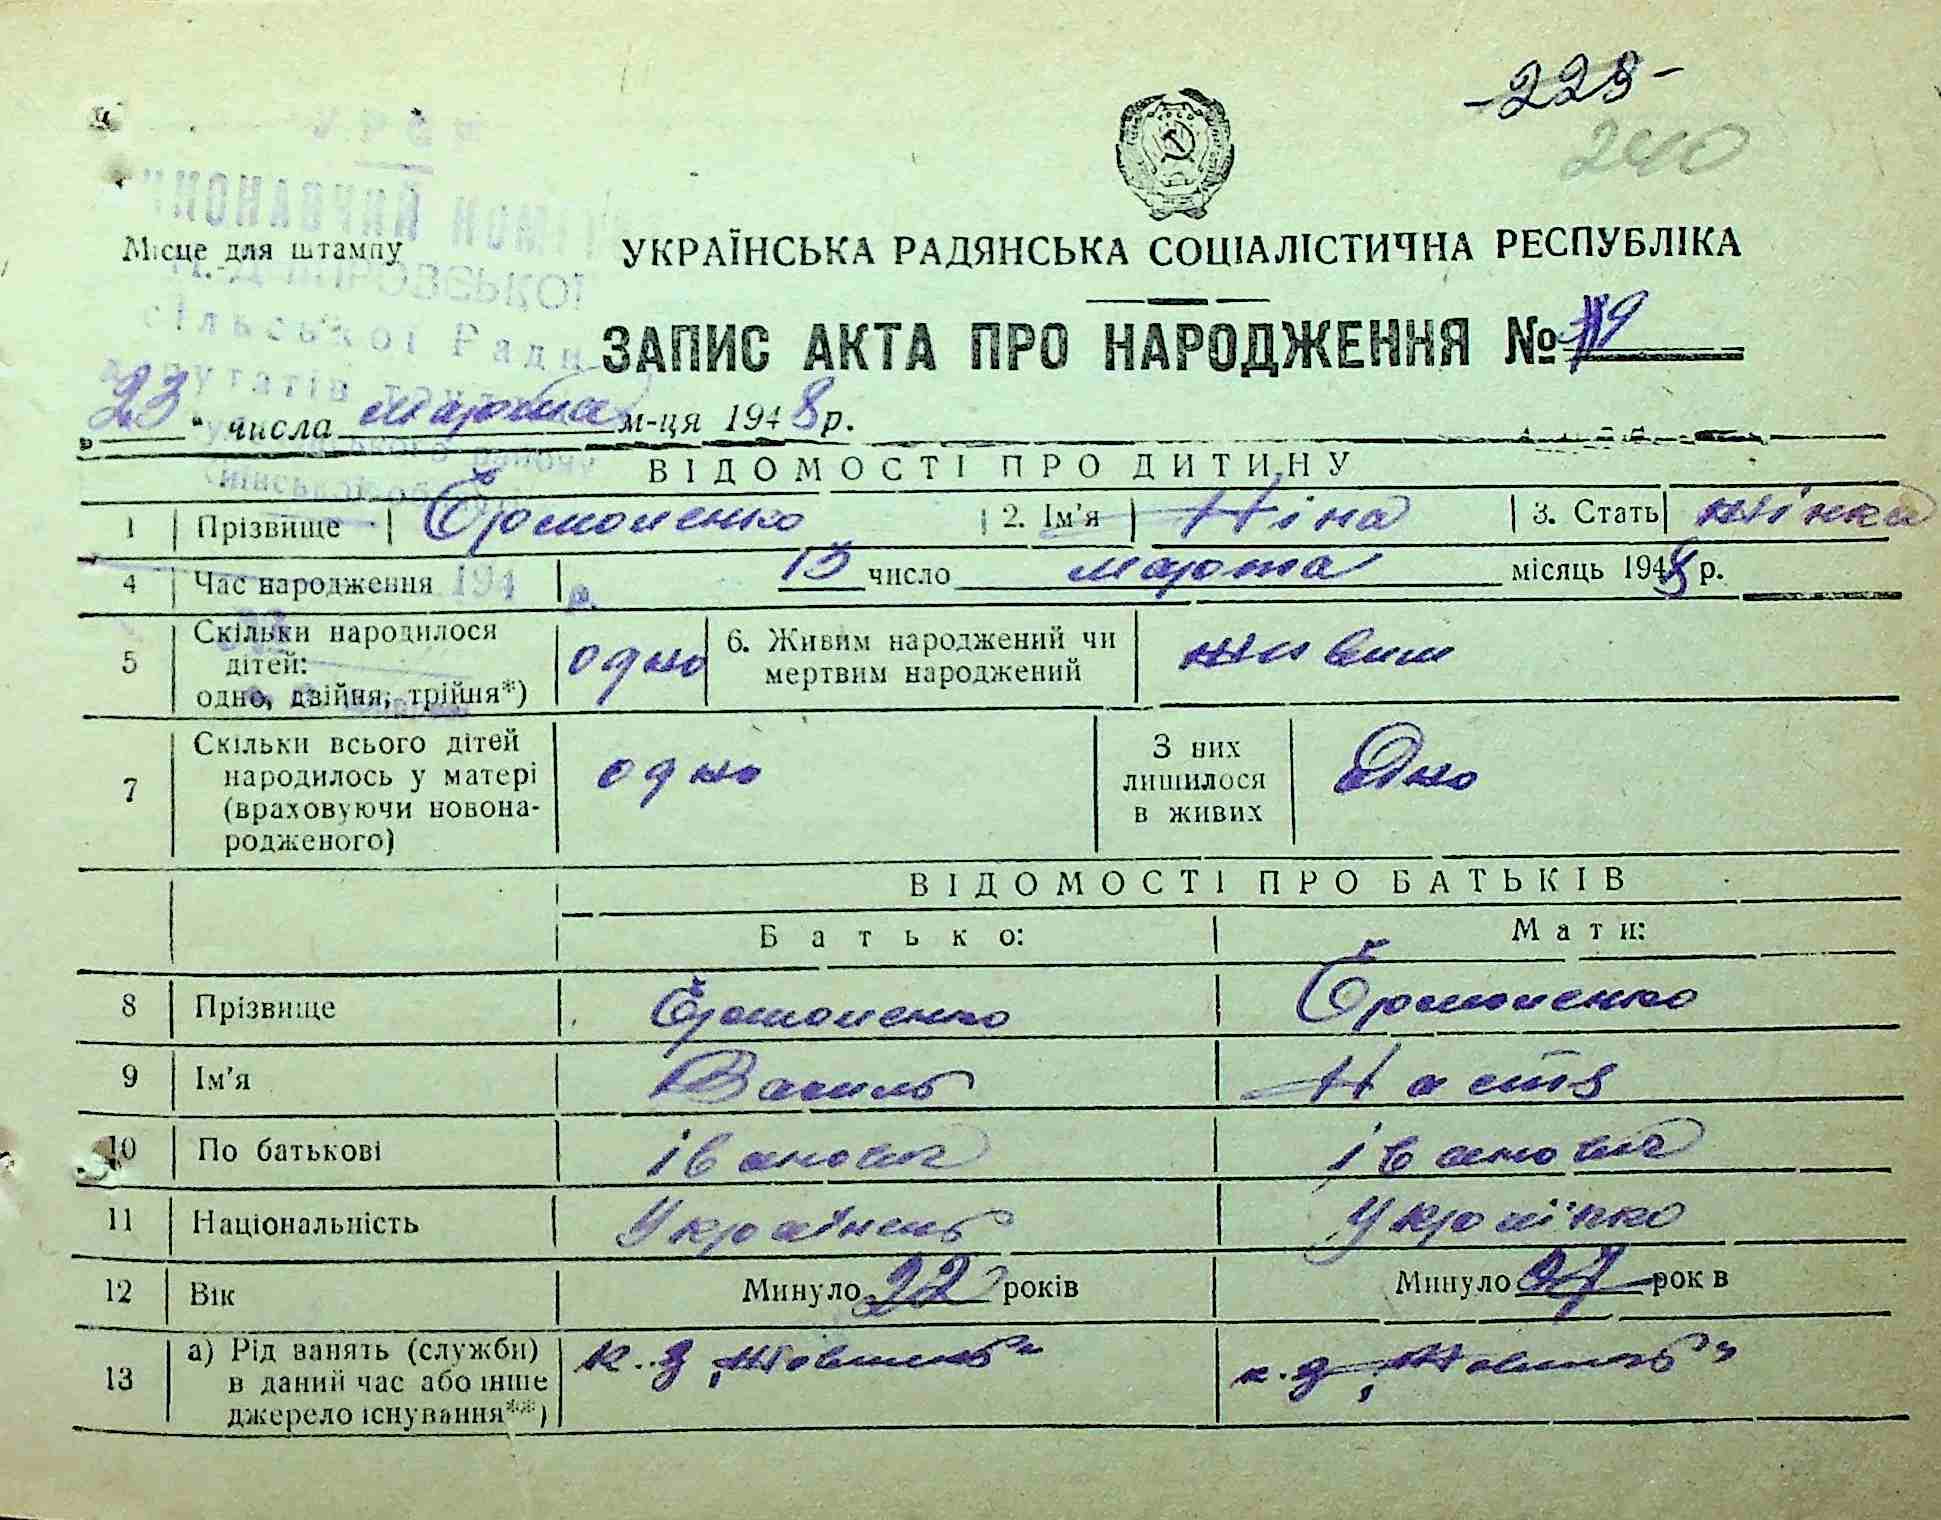 -223-
240
УРСР
Місце для штампу
УКРАЇНСЬКА РАДЯНСЬКА СОЦІАЛІСТИЧНА РЕСПУБЛІКА
сільської Ради
ЗАПИС АКТА ПРО НАРОДЖЕННЯ № 19
„23" числа марта м-ця 1948 р.
ВІДОМОСТІ ПРО ДИТИНУ
1 Прізвище Єрмоленко 2. Ім'я Ніна 3. Стать жінка
4 Час народження 15 число марта місяць 1948 р.
5 Скільки народилося дітей: одно, двійня, трійня*) одно 6. Живим народжений чи мертвим народжений живим
7 Скільки всього дітей народилось у матері (враховуючи новонародженого) одно З них лишилося в живих Одно
ВІДОМОСТІ ПРО БАТЬКІВ
Батько: Мати:
8 Прізвище Єрмоленко Єрмоленко
9 Ім'я Василь Настя
10 По батькові Іванович Івановна
11 Національність Українець Українка
12 Вік Минуло 22 років Минуло 27 років
13 а) Рід занять (служби) в даний час або інше джерело існування**) к. з „Жовтень" к. з „Жовтень"